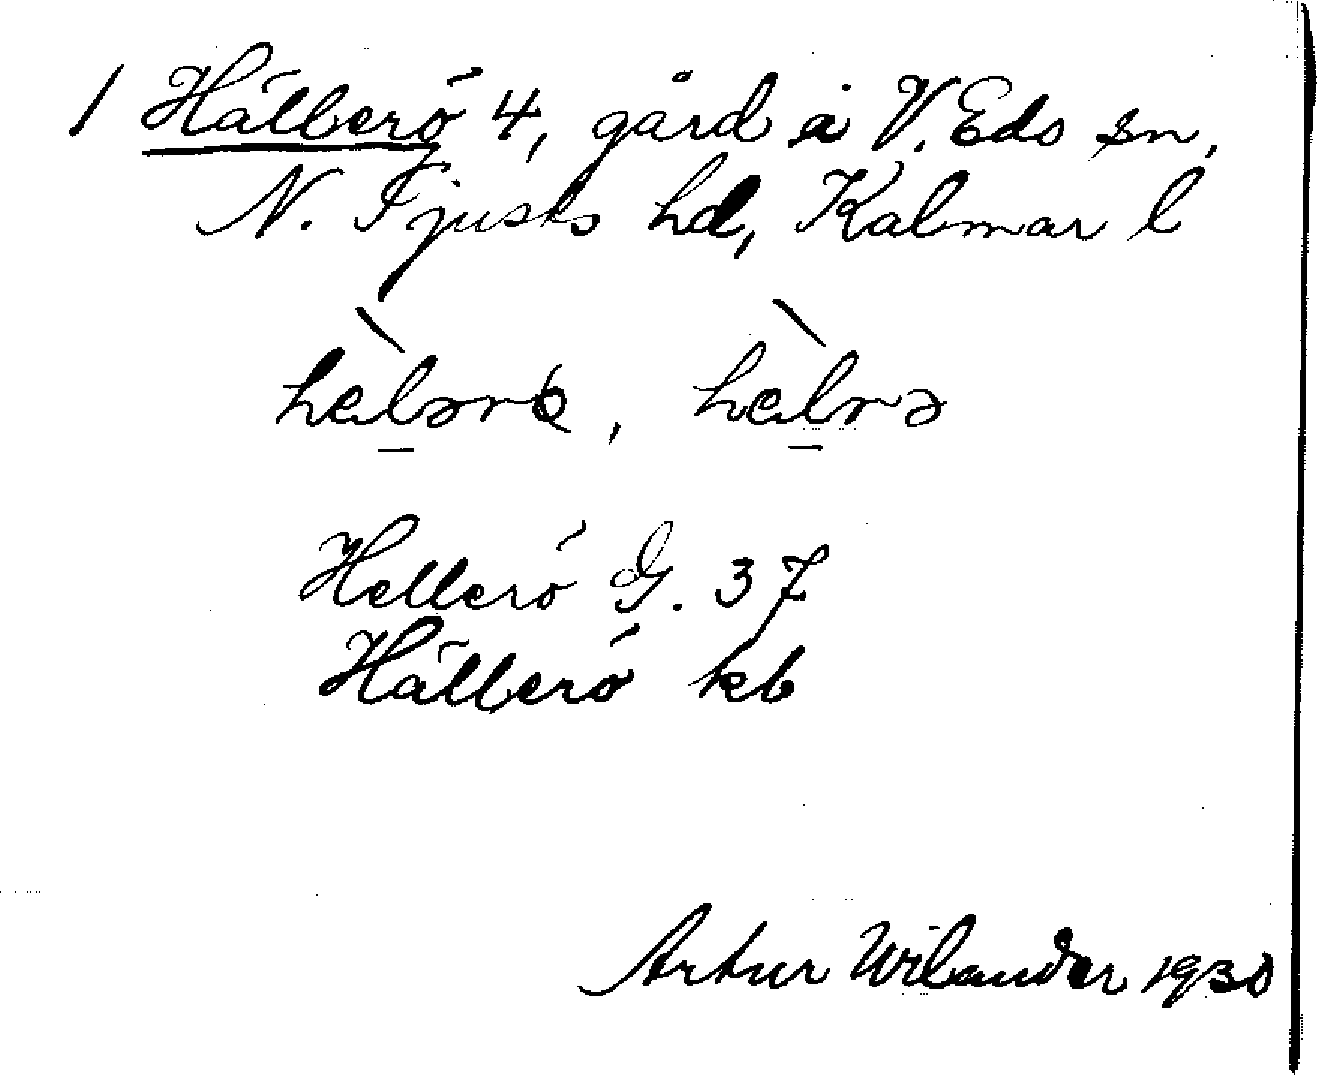 1 Hällerö 4, gård å V. Eds sn,
N. Tjusts hd, Kalmar l
hälərö, hälrə
Hellerö G. 37
Hällerö kb
Artur Wilander 1930